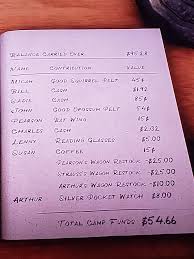 BALANCE CARRIED OVER $95.28
NAME CONTRIBUTION VALUE
MICAH GOOD SQUIRREL PELT 45¢
BILL CASH $1.92
SADIE CASH 85¢
JOHN GOOD OPOSSUM PELT 54¢
PEARSON BAT WING 15¢
CHARLES CASH $2.02
LENNY READING GLASSES $5.00
SUSAN COFFEE 15¢
PEARSON'S WAGON RESTOCK -$25.00
STRAUSS'S WAGON RESTOCK -$25.00
ARTHUR'S WAGON RESTOCK -$10.00
ARTHUR SILVER POCKET WATCH $8.00
TOTAL CAMP FUNDS: $54.66